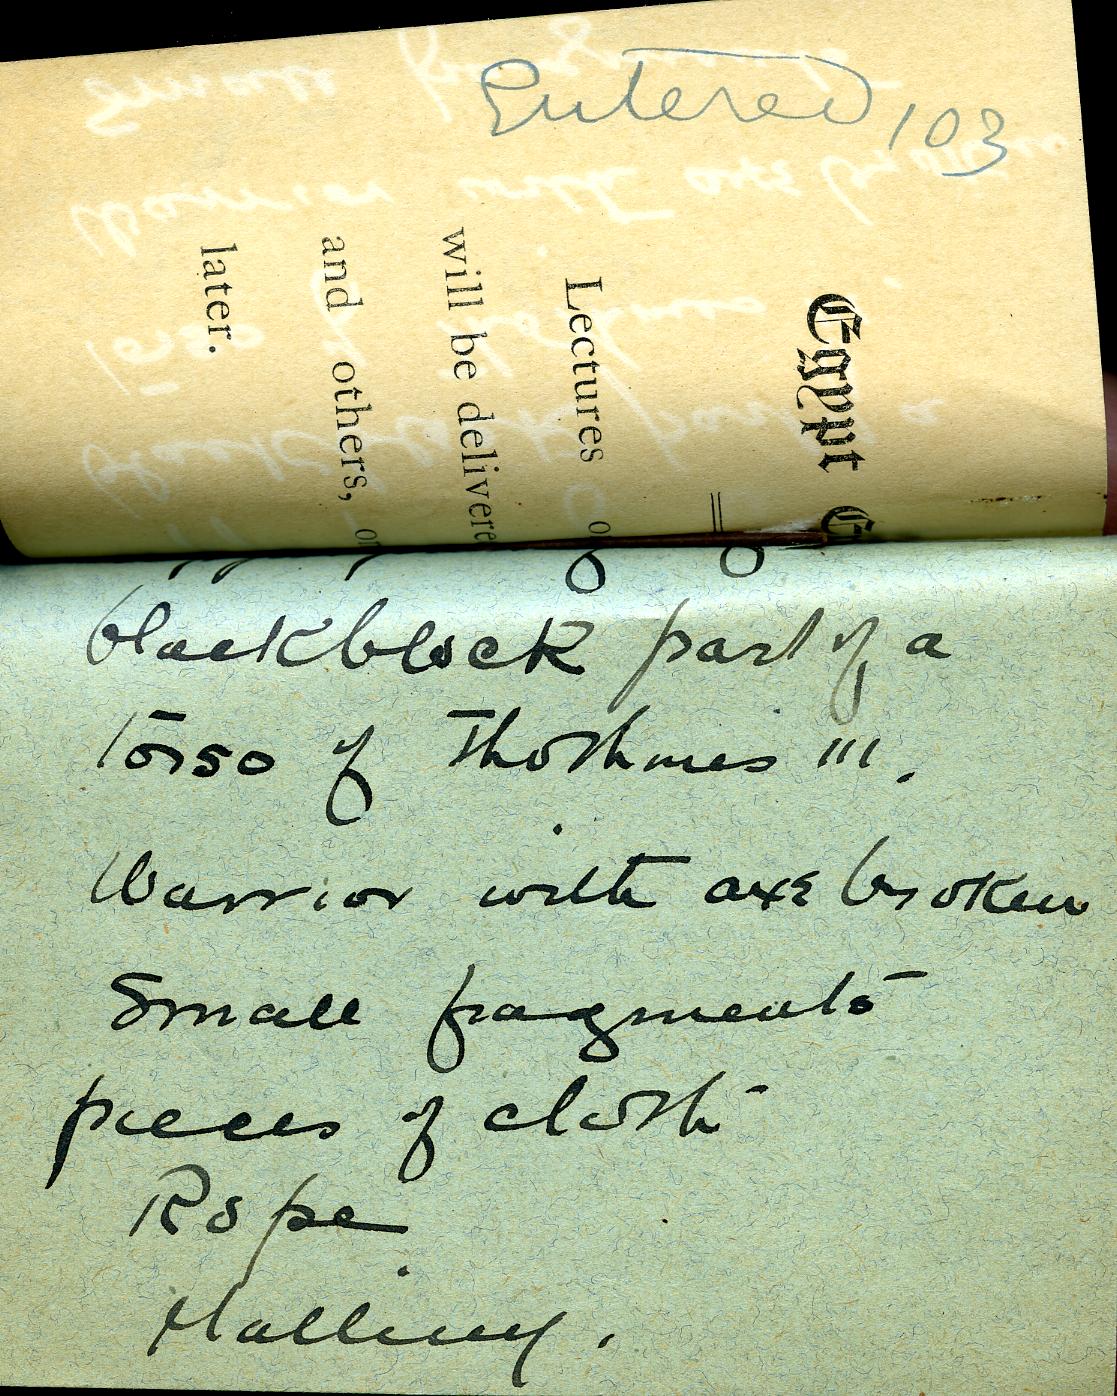 Entered 103
Egypt
Lectures o
will be delivere
and others, or
later.
black block part of a
Torso of Thothmes III.
Warrior with axe broken
Small fragments
pieces of cloth
Rope